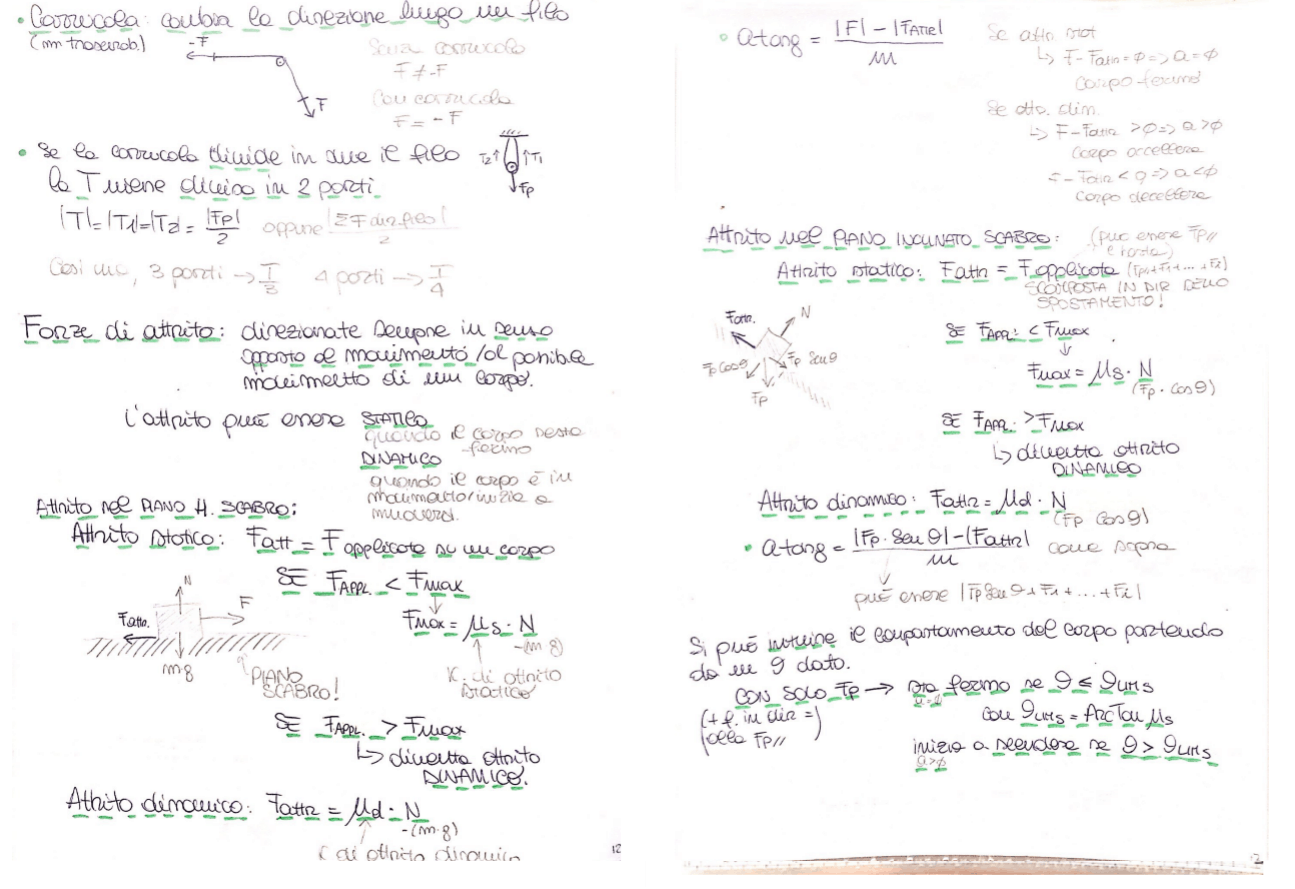 • Carrucola: cambia la direzione lungo un filo
(mm trascurab.)
-F
F
Senza carrucola
F ≠ -F
Con carrucola
F = -F
• Se la carrucola divide in due il filo
la T viene divisa in 2 parti.
T2 ↑ ↑T1
Fp
|T|=|T1|=|T2| = |Fp|/2 oppure |ΣF dir filo|/2
Così via, 3 parti → T/3 4 parti → T/4
Forze di attrito: direzionate sempre in senso
opposto al movimento /al possibile
movimento di un corpo.
L'attrito può essere STATICO
quando il corpo resta
fermo
DINAMICO
quando il corpo è in
movimento/inizia a
muoversi.
Attrito nel PIANO H. SCABRO:
Attrito statico: Fatt = F applicata su un corpo
SE FAPPL. < Fmax
↓
Fmax = μs · N
-(m·g)
K. di attrito
statico
N
F
Fattr.
m·g
PIANO
SCABRO!
SE FAPPL. > Fmax
↳ diventa attrito
DINAMICO.
Attrito dinamico: Fattr = μd · N
-(m·g)
K di attrito dinamico
12
• atang = (|F| - |FATTR|)/m
Se attr. stat
↳ F - Fattr = φ => a = φ
Corpo fermo
Se attr. dim.
↳ F - Fattr > φ => a > φ
Corpo accellera
F - Fattr < φ => a < φ
Corpo decellera
Attrito nel PIANO INCLINATO SCABRO:
(può essere Fp//
e basta)
Attrito statico: Fattr = F applicata (Fp//+F1+...+Fi)
SCOMPOSTA IN DIR DELLO
SPOSTAMENTO!
Fattr.
N
Fp cosθ
Fp senθ
Fp
SE FAPPL. < Fmax
↓
Fmax = μs · N
(Fp · cosθ)
SE FAPPL. > Fmax
↳ diventa attrito
DINAMICO
Attrito dinamico: Fattr = μd · N
(Fp cosθ)
• atang = (|Fp · senθ| - |Fattr|)/m come sopra
↓
può essere |Fp senθ + F1 + ... + Fi|
Si può intuire il comportamento del corpo partendo
da un θ dato.
CON SOLO Fp → sta fermo se θ ≤ θLIMS
a=φ
(+ f. in dir =
alla Fp//)
con θLIMS = ArcTan μs
inizia a scendere se θ > θLIMS
a>φ
2